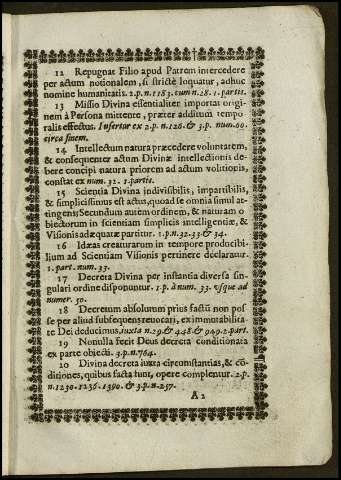 12 Repugnat Filio apud Patrem intercedere
per actum notionalem, si strictè loquatur, adhuc
nomine humanitatis. 2.p.n.1183.cum n.28.1.partis.
13 Missio Divina essentialiter importat origi-
nem à Persona mittente, præter additum tempo-
ralis effectus. Infertur ex 2.p.n.120.& 3.p. num.60.
circa finem.
14 Intellectum natura præcedere voluntatem,
& consequenter actum Divinæ intellectionis de-
bere concipi natura priorem ad actum volitionis,
constat ex num.32.1.partis.
15 Scientia Divina indivisibilis, impartibilis,
& simplicissimus est actus, quoad se omnia simul at-
tingens; Secundum autem ordinem, & naturam o-
biectorum in scientiam simplicis intelligentiæ, &
Visionis adæquatæ partitur. 1.p.n.32.33.& 34.
16 Idæas creaturarum in tempore producibi-
lium ad Scientiam Visionis pertinere declaratur.
1.part.num.33.
17 Decreta Divina per instantia diversa sin-
gulari ordine disponuntur. 1.p. à num. 33. vsque ad
numer. 50.
18 Decretum absolutum prius facti non pos-
se per aliud subsequens revocari, ex immutabilita-
te Dei deducimus, iuxta n.29.& 448.& 949.2.part.
19 Nonulla fecit Deus decreta conditionata
ex parte obiecti. 3.p.n.764.
20 Divina decreta iuxta circumstantias, & cō-
ditiones, quibus facta sunt, opere complentur. 2.p.
n.1230.1236.1390.& 3.p.n.257.
A2